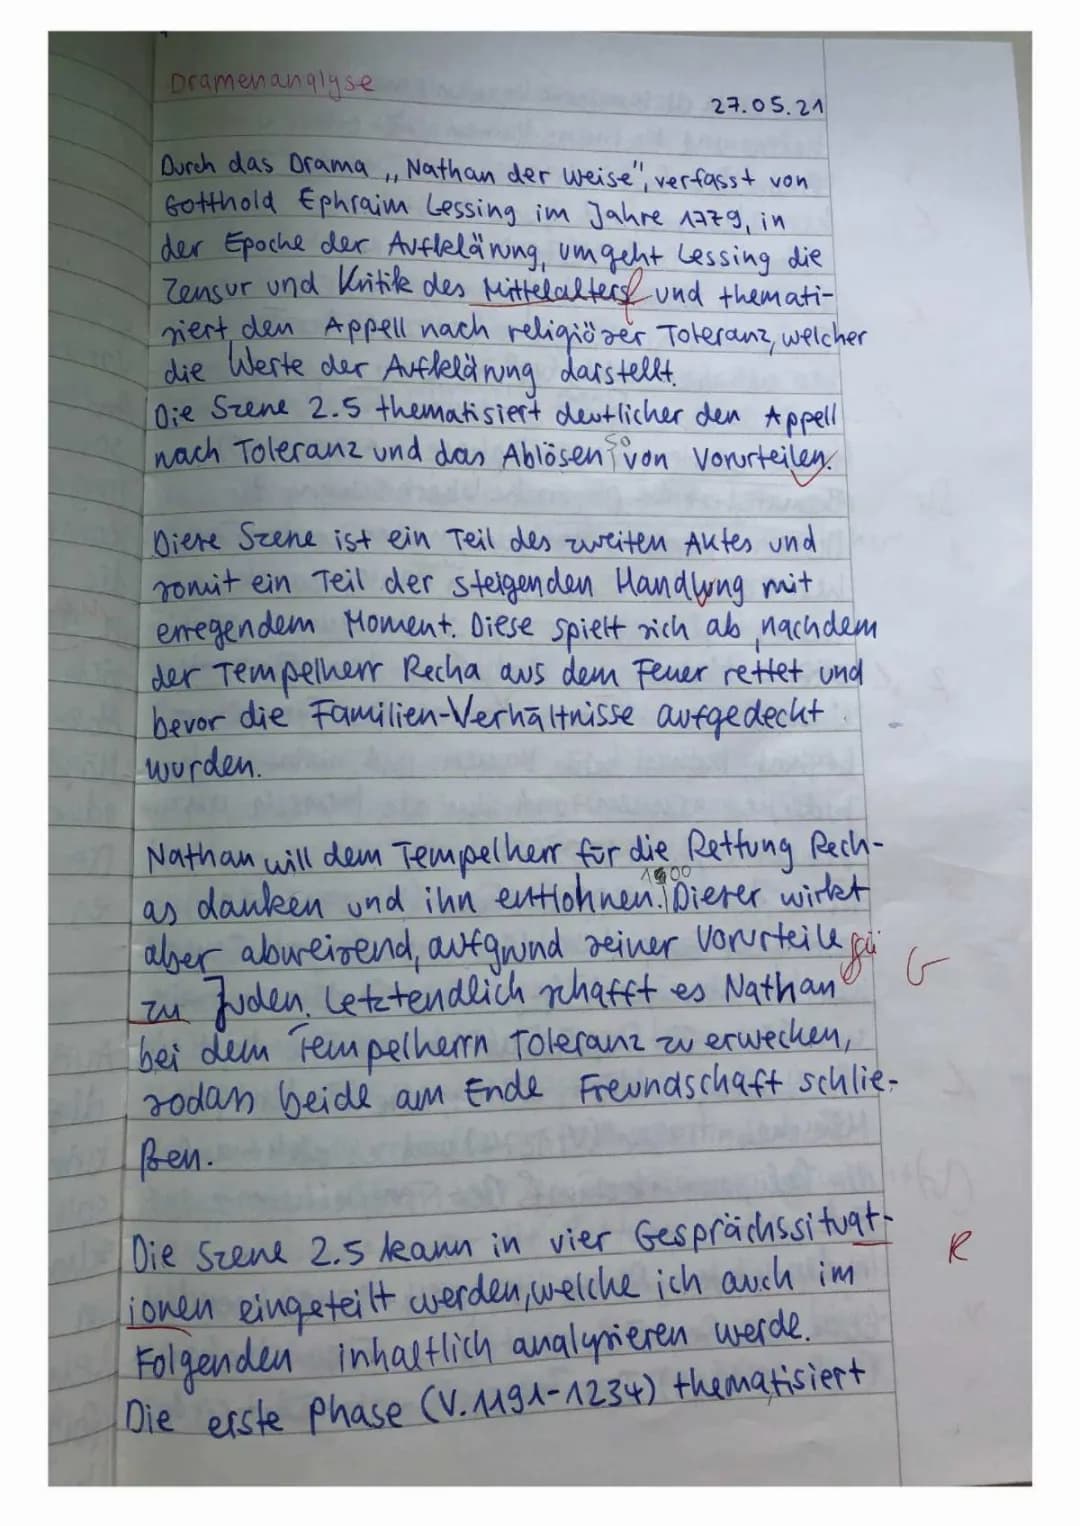 Dramenanalyse
27.05.21
Durch das Drama „Nathan der Weise", verfasst von
Gotthold Ephraim Lessing im Jahre 1779, in
der Epoche der Aufklärung, umgeht Lessing die
Zensur und Kritik des Mittelalters f und themati-
siert den Appell nach religiöser Toleranz, welcher
die Werte der Aufklärung darstellt.
Die Szene 2.5 thematisiert deutlicher den Appell
so
nach Toleranz und das Ablösen von Vorurteilen.
Diese Szene ist ein Teil des zweiten Aktes und
somit ein Teil der steigenden Handlung mit
erregendem Moment. Diese spielt sich ab, nachdem
der Tempelherr Recha aus dem Feuer rettet und
bevor die Familien-Verhältnisse aufgedeckt
wurden.
Nathan will dem Tempelherr für die Rettung Rech-
as danken und ihn entlohnen. Dieser wirkt
aber abweisend, aufgrund seiner Vorurteile
zu Juden. Letztendlich schafft es Nathan
G
bei dem Tempelherrn Toleranz zu erwecken,
sodass beide am Ende Freundschaft schlie-
ßen.
Die Szene 2.5 kann in vier Gesprächssituat-
R
ionen eingeteilt werden, welche ich auch im
Folgenden inhaltlich analysieren werde.
Die erste Phase (V.1191-1234) thematisiert